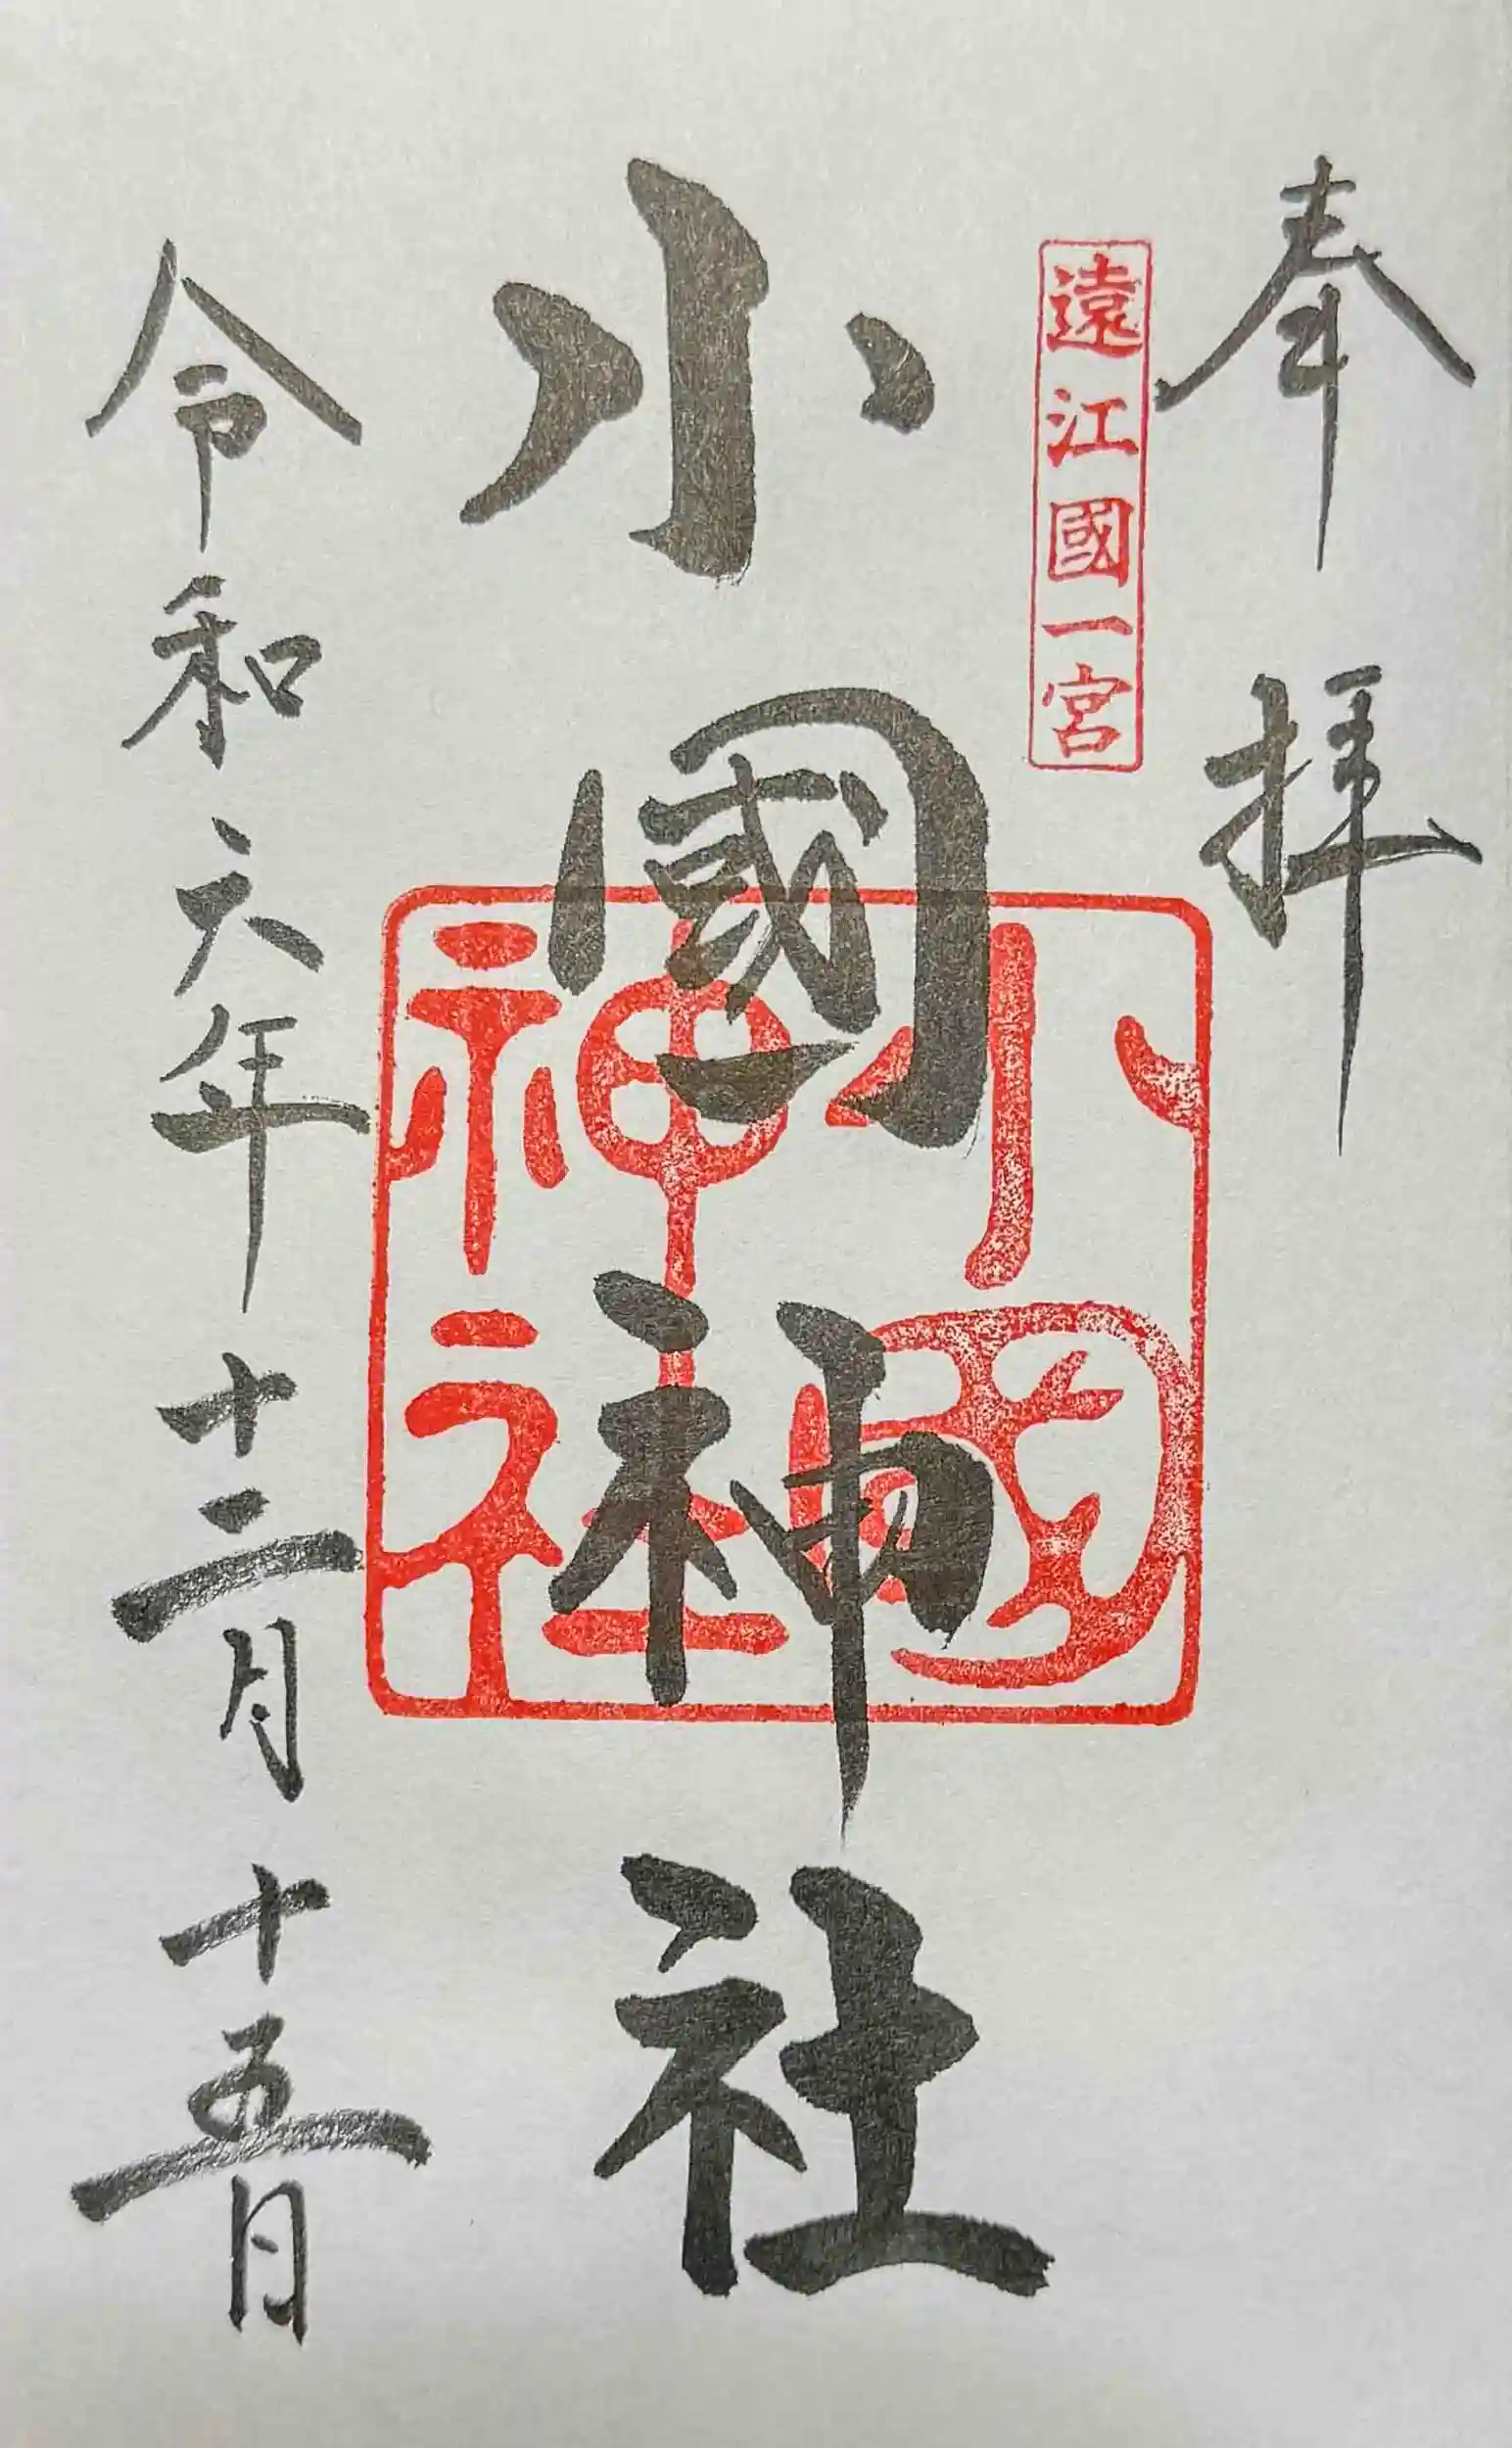 奉拝
遠江國一宮
小國神社
小國神社
令和六年十二月十五日